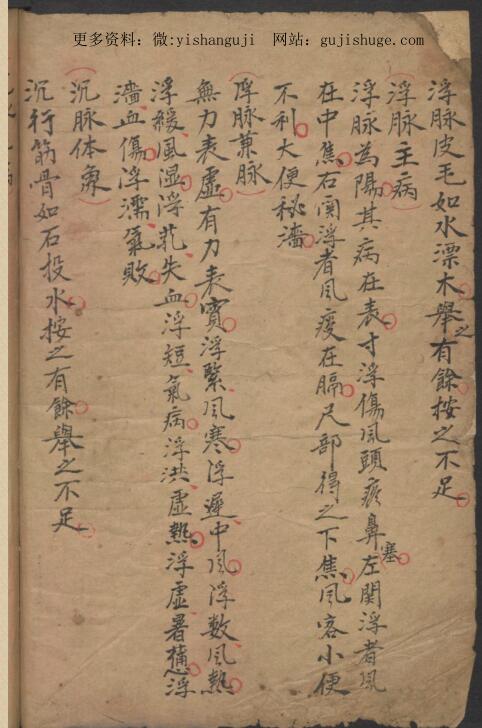 更多资料：微:yishanguji　网站：gujishuge.com
浮脉皮毛如水漂木舉之有餘按之不足
（浮脉主病）
浮脉為陽其病在表寸浮傷風頭疼鼻塞左関浮者風
在中焦右関浮者風痰在膈尺部得之下焦風客小便
不利大便秘濇
（浮脉兼脉）
無力表虚有力表實浮緊風寒浮遲中風浮数風熱
浮緩風湿浮芤失血浮短氣病浮洪虚熱浮虚暑憊浮
濇血傷浮濡氣敗
（沉脉体象）
沉行筋骨如石投水按之有餘舉之不足